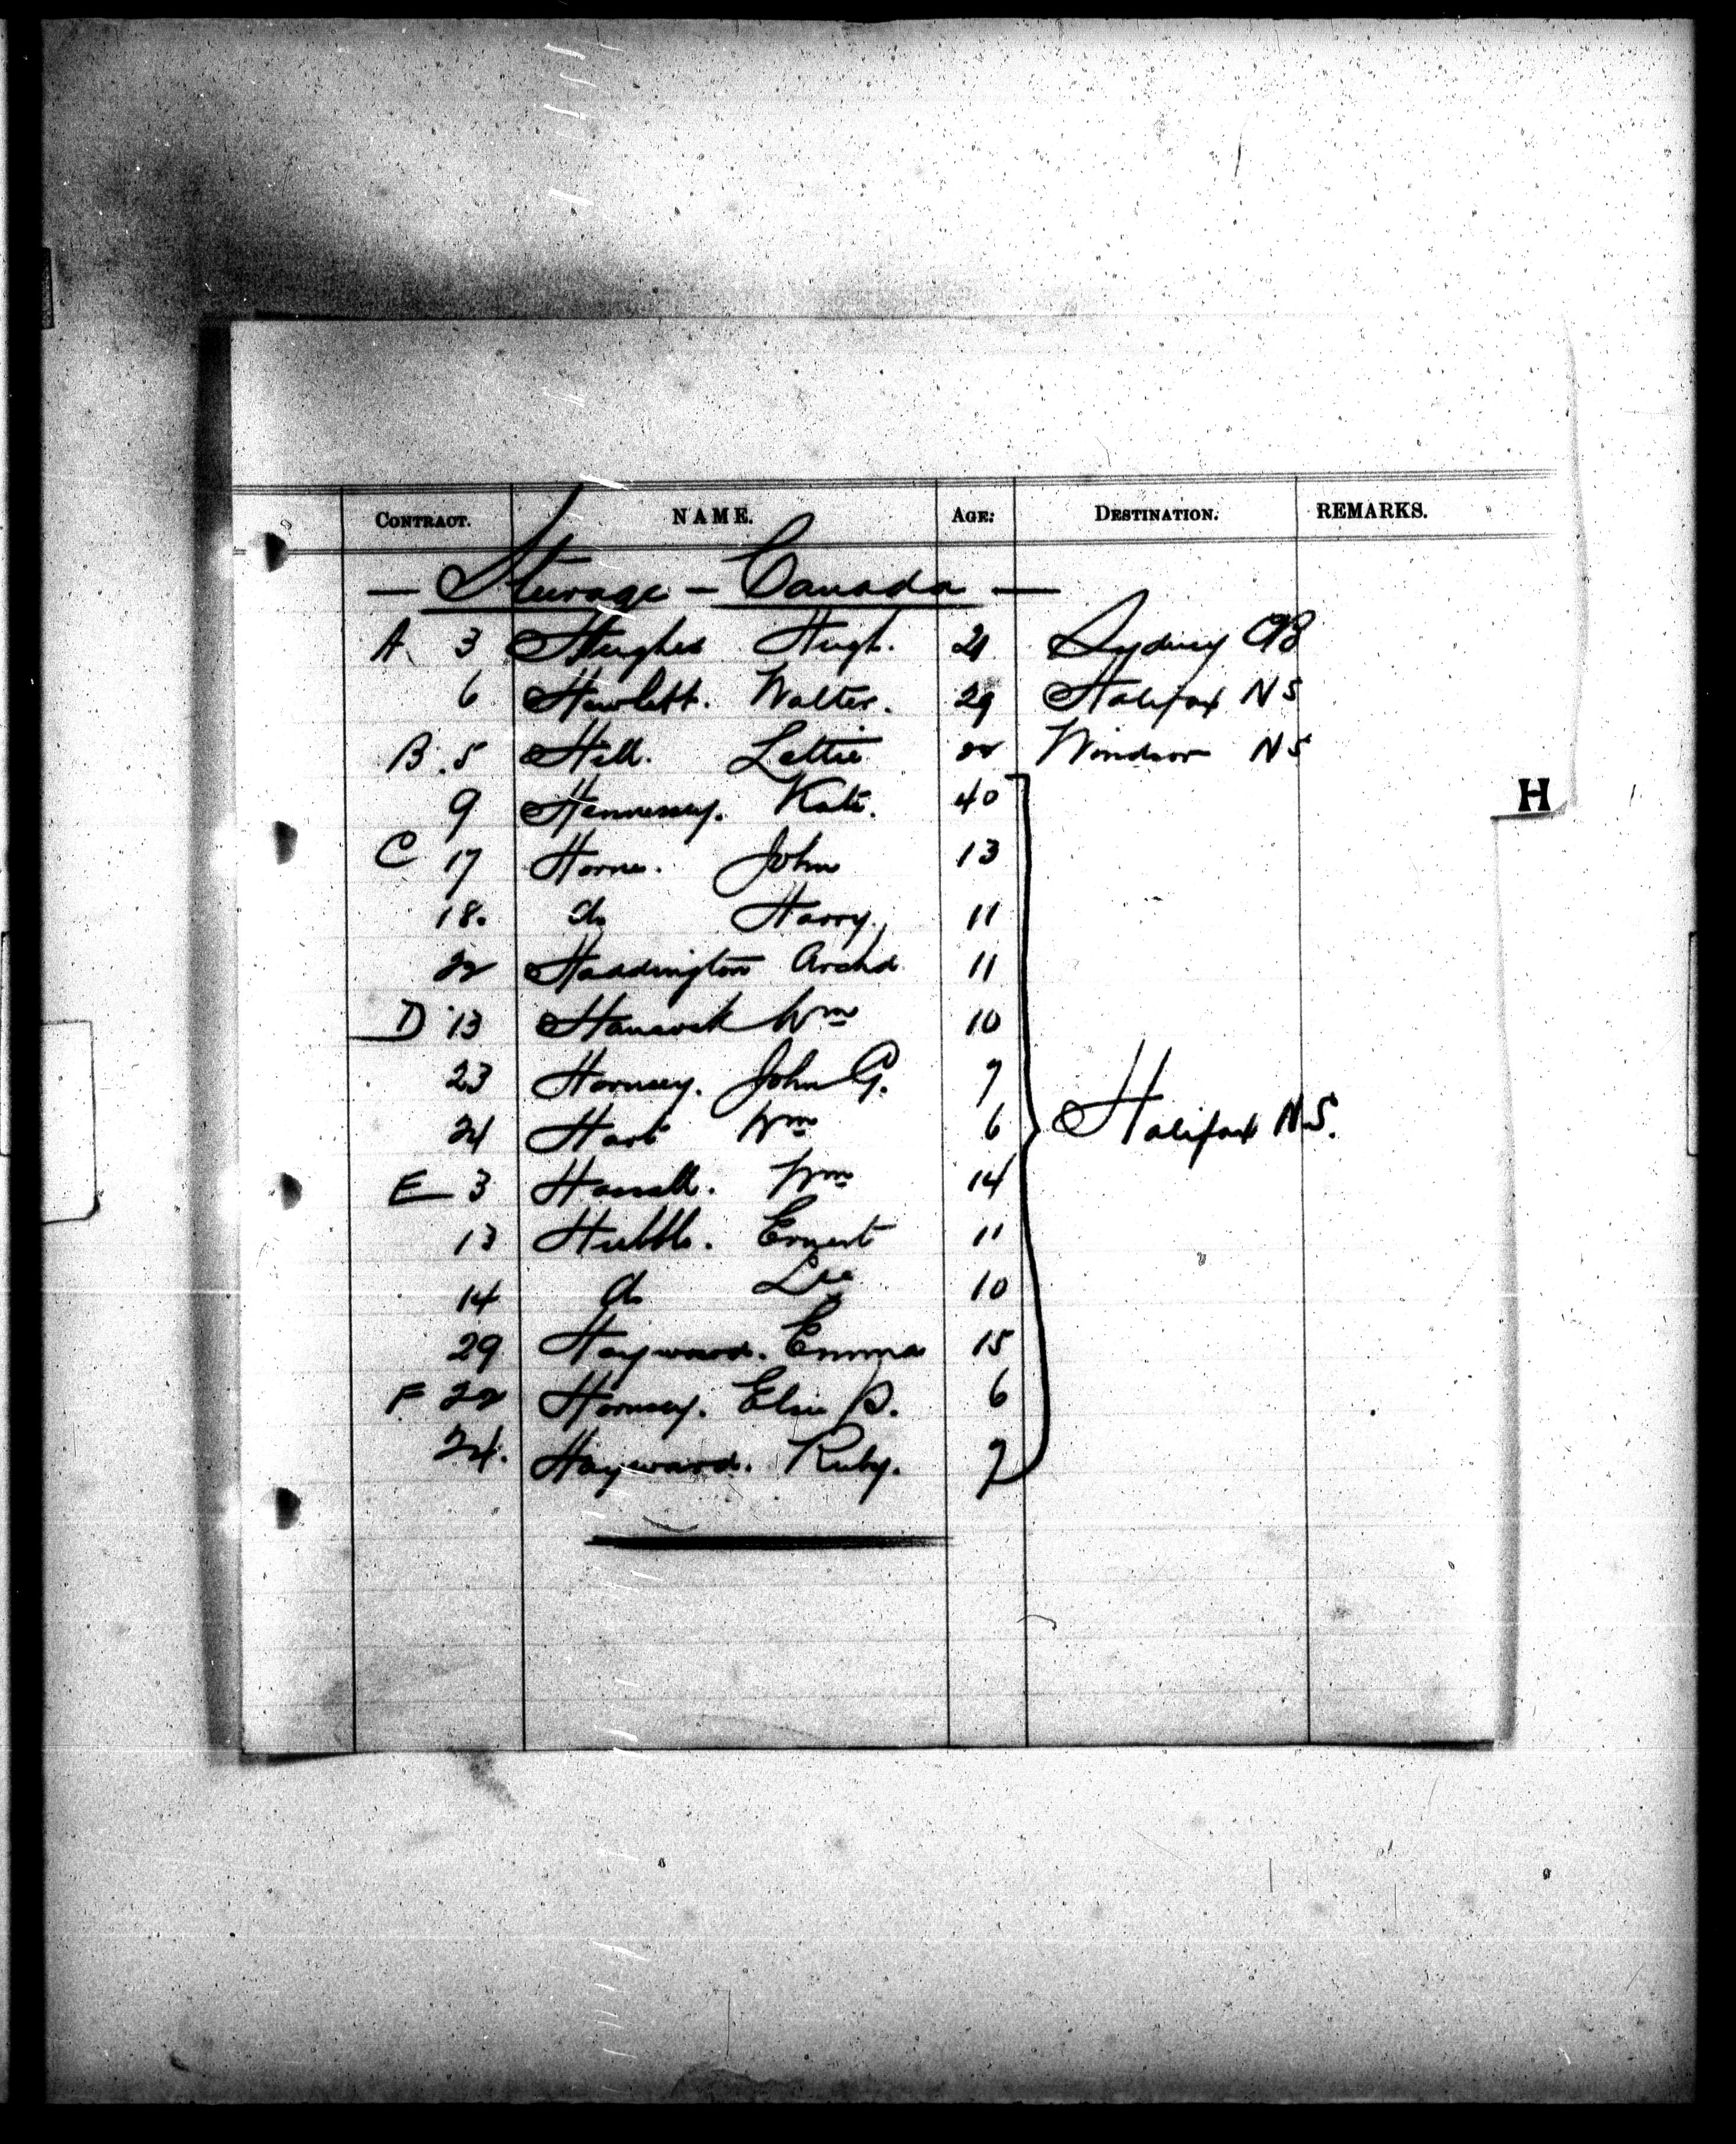 CONTRACT. NAME. AGE: DESTINATION. REMARKS.
— Steerage - Canada —
A 3 Hughes Hugh. 21 Sydney CB
6 Hewlett. Walter. 29 Halifax NS
B. 5 Hill. Lettie 22 Windsor NS
9 Hennessey. Kate. 40
H
C 17 Horne. John 13
18. do Harry. 11
22 Haddington Archd 11
D 13 Hancock Wm 10
23 Hornsey. John G. 7
24 Hart Wm 6 Halifax N.S.
E 3 Wm 14
13 Hubble. Ernest 11
14 do 10
29 Hayward. Emma 15
F 22 Hornsey. Elsie B. 6
24. Hayward. Ruby. 7